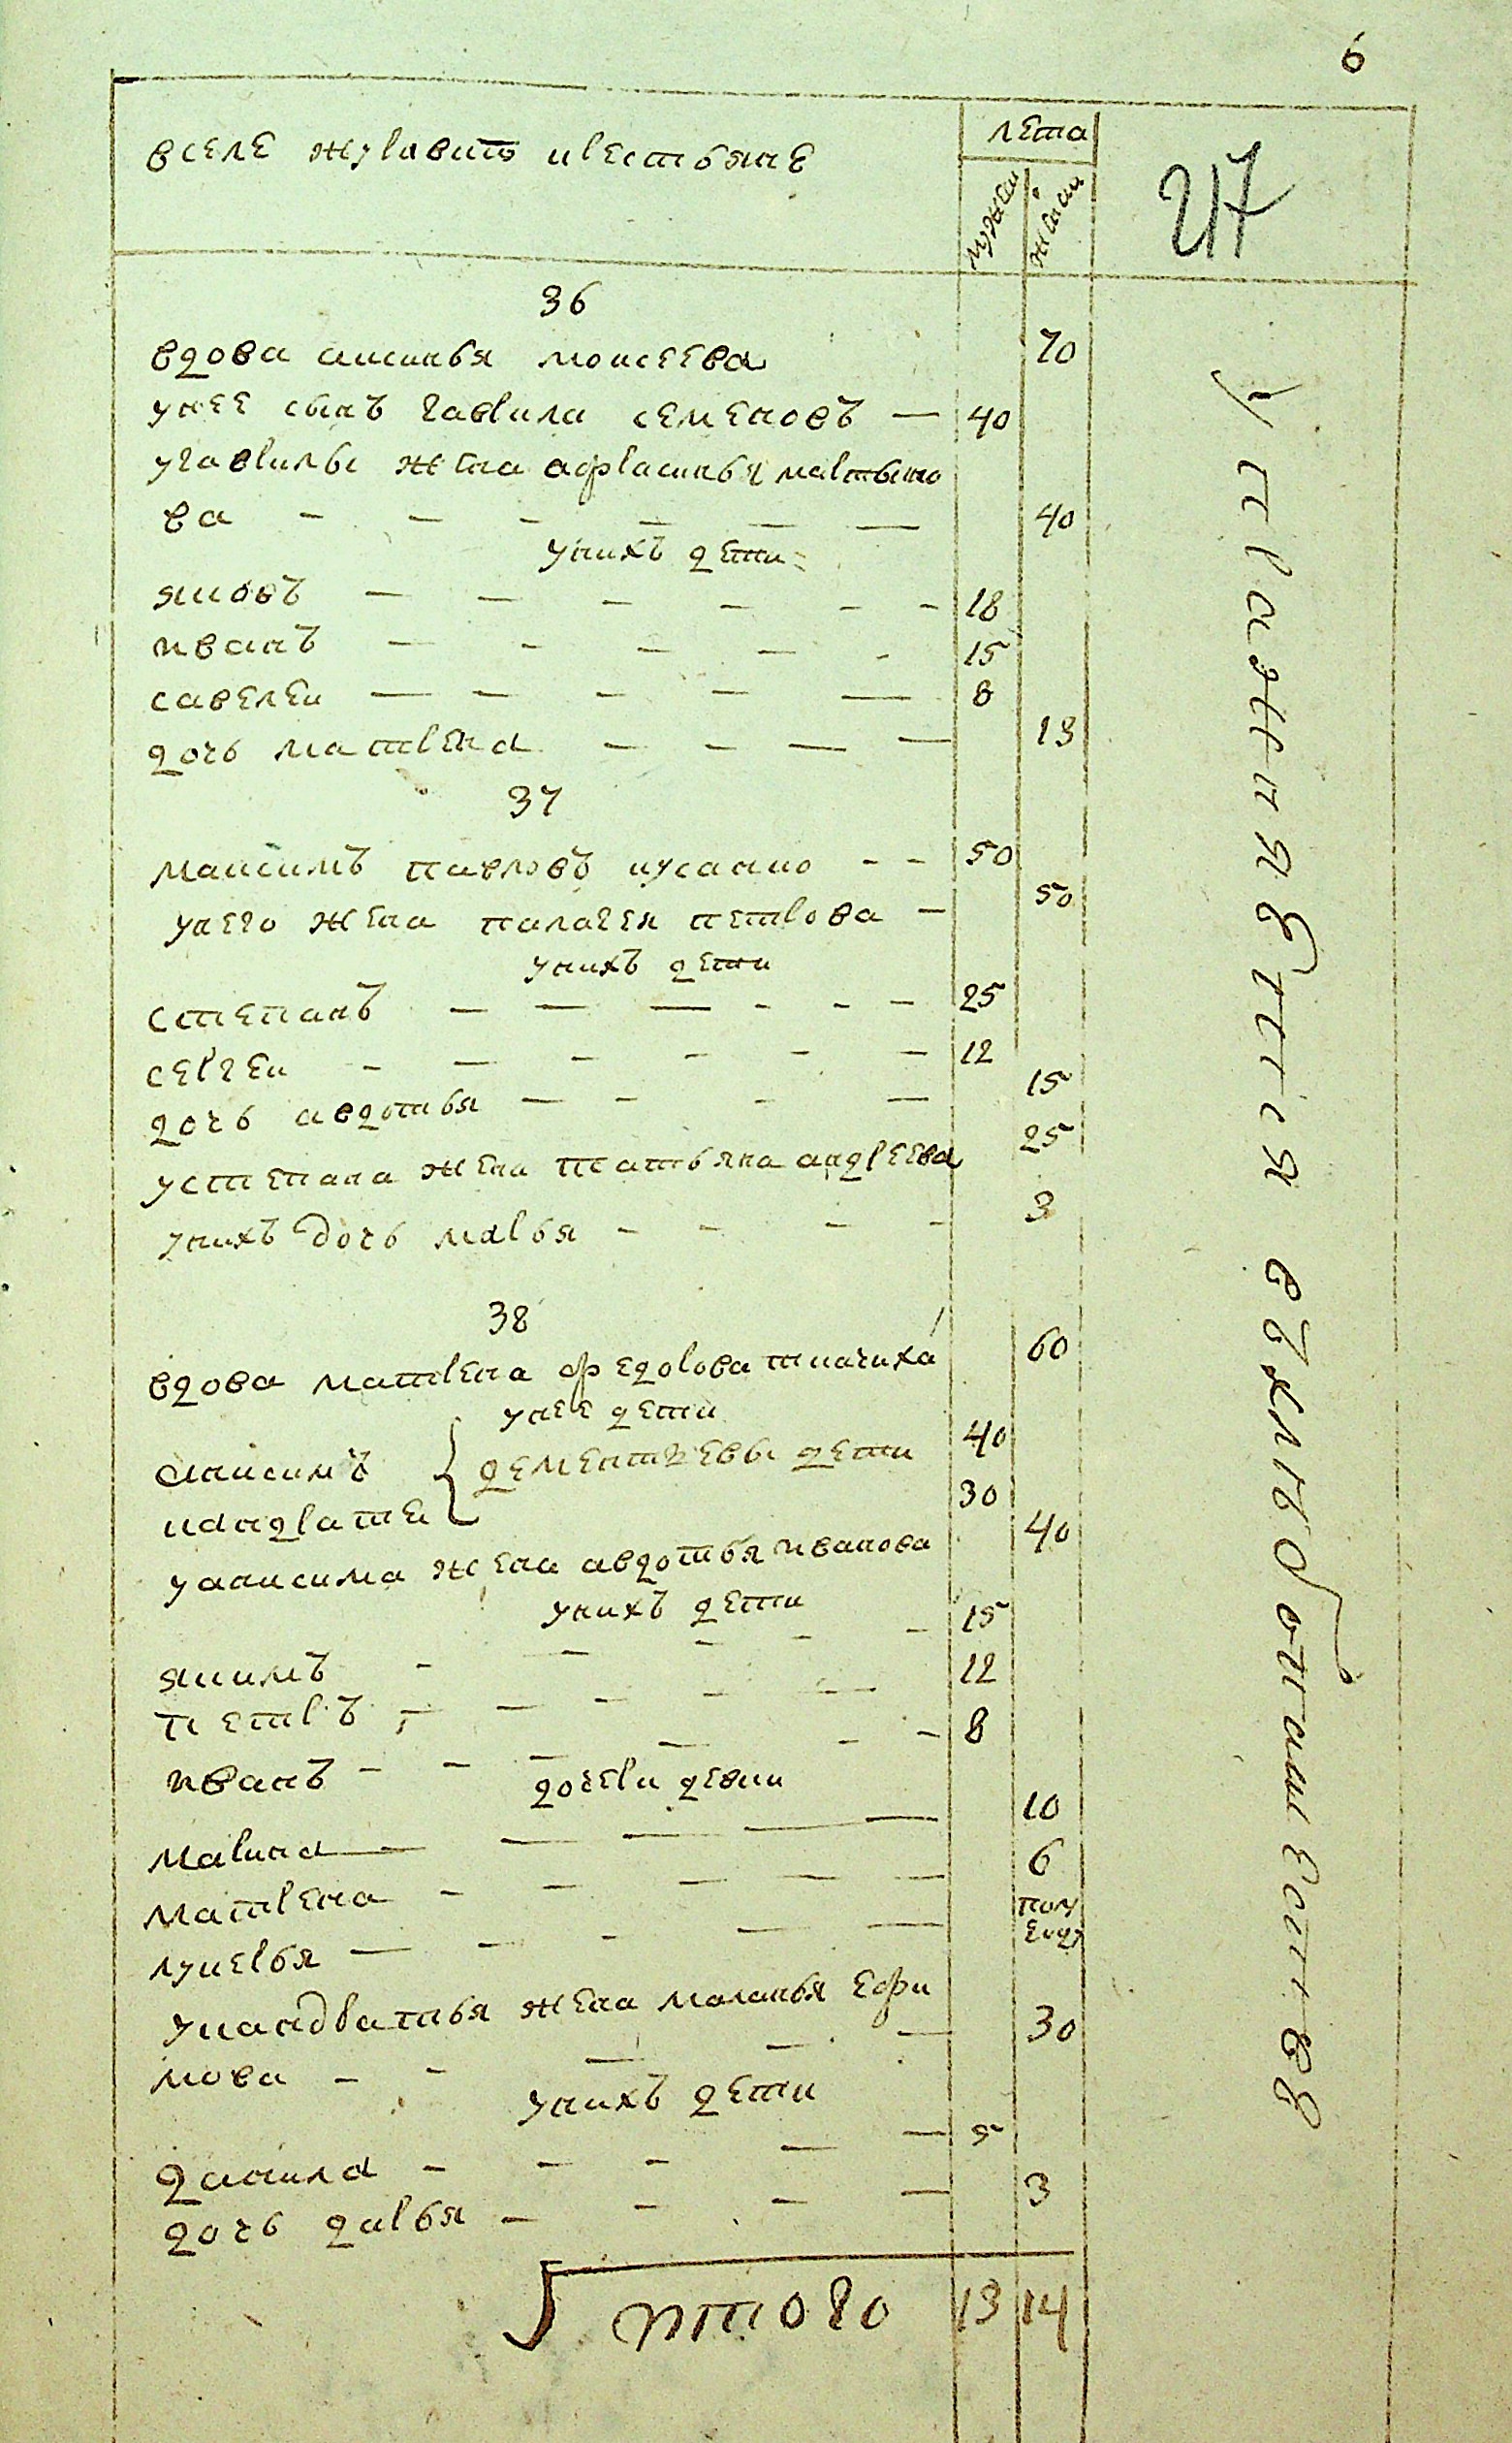 6
вселе журавить крестьяне
лета
мужски
женски
217
36
вдова аксинья моисеева 70
унее сынъ гаврила семеновъ — 40
угаврилы жена афрасинья мартыно
ва — — — — — — 40
унихъ дети
яковъ — — — — — — 18
иванъ — — — — — 15
савелеи — — — — — 8
дочь матрена — — — — 13
37
максимъ павловъ кусаако — — 50
унего жена палагея петрова — 50
унихъ дети
степанъ — — — — — — 25
сергеи — — — — — — 12
дочь авдотья — — — — 15
устепана жена татьяна андреева 25
унихъ дочь марья — — — — 3
38
вдова матрена федорова ткачиха 60
унее дети
анисимъ { дементиевы дети 40
кандратеи 30
уанисима жена авдотья иванова 40
унихъ дети
якимъ — — — — — 15
петръ — — — — — 12
иванъ — — — — — — 8
дочери девки
марина — — — — — 10
матрена — — — — — 6
лукерья — — — — — пол
году
укандратья жена маланья ефи
мова — — — — — 30
унихъ дети
данила — — — — — 5
дочь дарья — — — — 3
итого 13 14